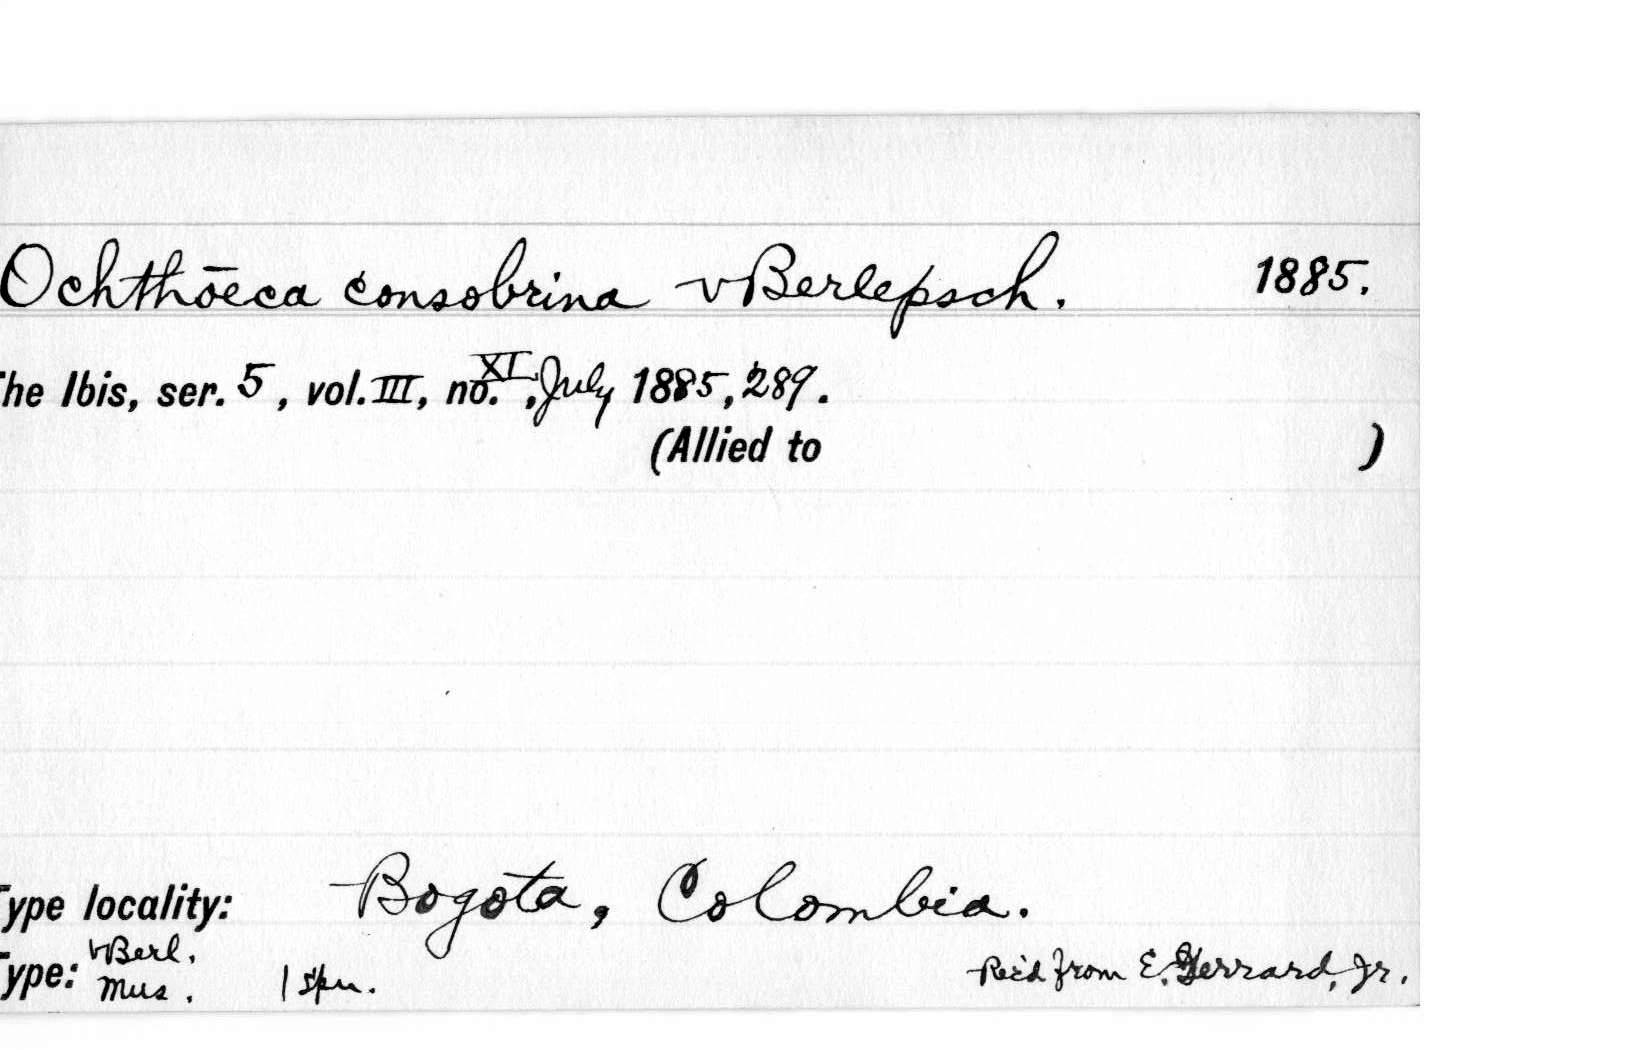 Ochthōeca consobrina vBerlepsch. 1885.
he Ibis, ser. 5, vol. III, no. XI, July 1885, 289.
(Allied to )
ype locality: Bogota, Colombia.
ype: vBerl. Mus. 1 spn. Rec'd from E. Gerrard, Jr.